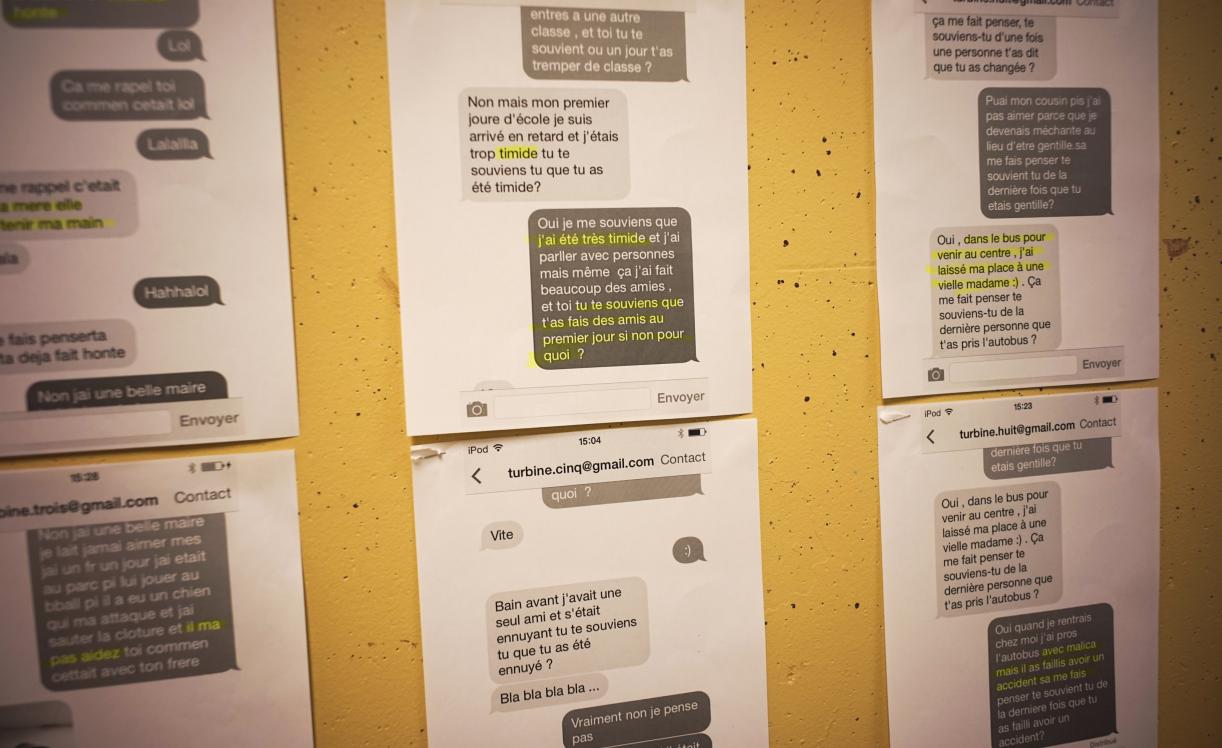 honte
Lol
Ca me rapel toi
commen cetait lol
Lalallla
me rappel c'etait
a mere elle
tenir ma main
ala
Hahhalol
e fais penserta
ta deja fait honte
Non jai une belle maire
Envoyer
15:28
bine.trois@gmail.com Contact
Non jai une belle maire
je lait jamai aimer mes
jai un fr un jour jai etait
au parc pi lui jouer au
bball pi il a eu un chien
qui ma attaque et jai
sauter la cloture et il ma
pas aidez toi commen
cettait avec ton frere
entres a une autre
classe , et toi tu te
souvient ou un jour t'as
tremper de classe ?
Non mais mon premier
joure d'école je suis
arrivé en retard et j'étais
trop timide tu te
souviens tu que tu as
été timide?
Oui je me souviens que
j'ai été très timide et j'ai
parller avec personnes
mais même ça j'ai fait
beaucoup des amies ,
et toi tu te souviens que
t'as fais des amis au
premier jour si non pour
quoi ?
Envoyer
iPod 15:04
turbine.cinq@gmail.com Contact
quoi ?
Vite
:)
Bain avant j'avait une
seul ami et s'était
ennuyant tu te souviens
tu que tu as été
ennuyé ?
Bla bla bla bla ...
Vraiment non je pense
pas
turbine.huit@gmail.com Contact
ça me fait penser, te
souviens-tu d'une fois
une personne t'as dit
que tu as changée ?
Puai mon cousin pis j'ai
pas aimer parce que je
devenais méchante au
lieu d'etre gentille.sa
me fais penser te
souvient tu de la
dernière fois que tu
etais gentille?
Oui , dans le bus pour
venir au centre , j'ai
laissé ma place à une
vielle madame :) . Ça
me fait penser te
souviens-tu de la
dernière personne que
t'as pris l'autobus ?
Envoyer
iPod 15:23
turbine.huit@gmail.com Contact
dernière fois que tu
etais gentille?
Oui , dans le bus pour
venir au centre , j'ai
laissé ma place à une
vielle madame :) . Ça
me fait penser te
souviens-tu de la
dernière personne que
t'as pris l'autobus ?
Oui quand je rentrais
chez moi j'ai pros
l'autobus avec malica
mais il as faillis avoir un
accident sa me fais
penser te souvient tu de
la derniere fois que tu
as failli avoir un
accident?